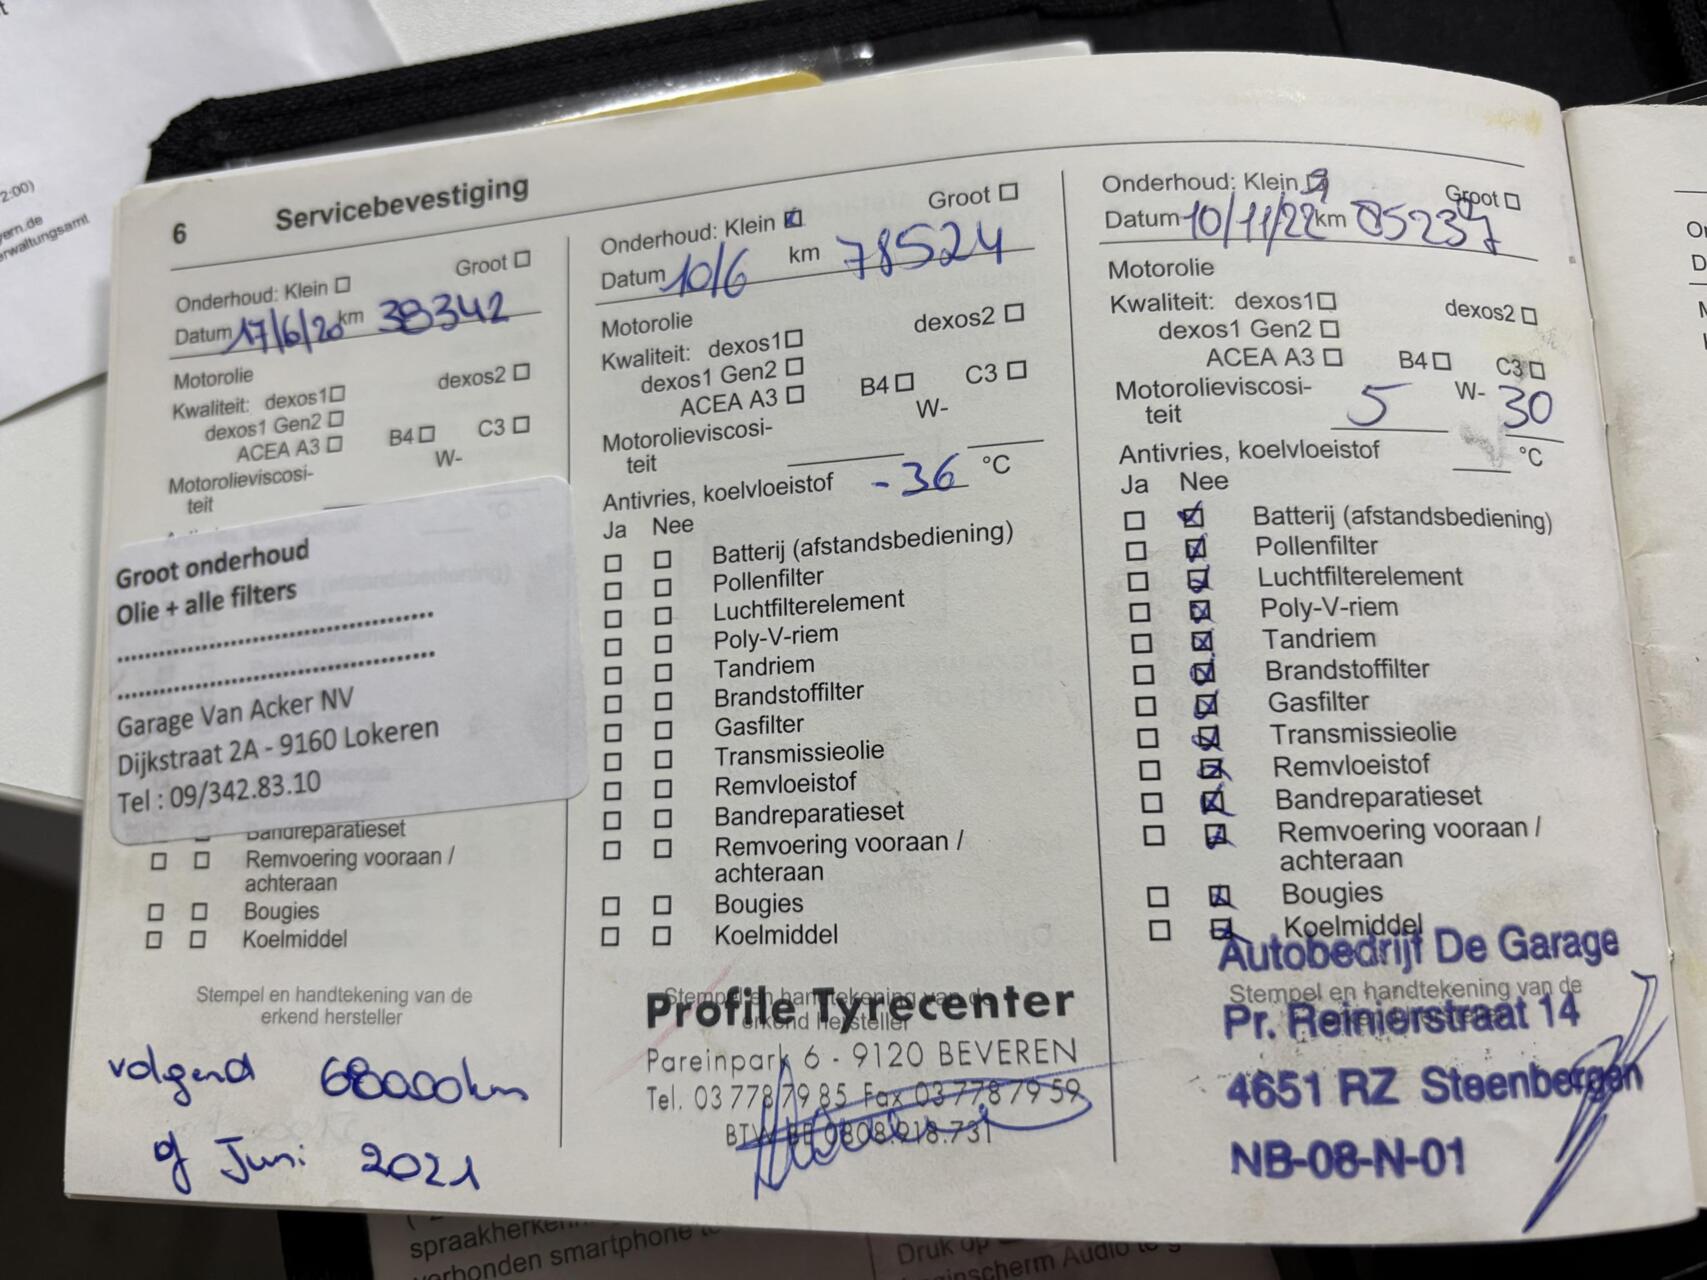 2:00)
ern.de
erwaltungsamt
6 Servicebevestiging
Onderhoud: Klein Groot
Datum 17/6/20 km 38342
Motorolie
Kwaliteit: dexos1 dexos2
dexos1 Gen2
ACEA A3 B4 C3
Motorolieviscosi- W-
teit
°C
Groot onderhoud
Olie + alle filters
................................
................................
Garage Van Acker NV
Dijkstraat 2A - 9160 Lokeren
Tel : 09/342.83.10
Bandreparatieset
Remvoering vooraan /
achteraan
Bougies
Koelmiddel
Stempel en handtekening van de
erkend hersteller
volgend 68000km
of Juni 2021
Onderhoud: Klein Groot
Datum 10/6 km 78524
Motorolie
Kwaliteit: dexos1 dexos2
dexos1 Gen2
ACEA A3 B4 C3
Motorolieviscosi- W-
teit
Antivries, koelvloeistof -36 °C
Ja Nee
Batterij (afstandsbediening)
Pollenfilter
Luchtfilterelement
Poly-V-riem
Tandriem
Brandstoffilter
Gasfilter
Transmissieolie
Remvloeistof
Bandreparatieset
Remvoering vooraan /
achteraan
Bougies
Koelmiddel
Stempel en handtekening van de
erkend hersteller
Profile Tyrecenter
Pareinpark 6 - 9120 BEVEREN
Tel. 03 778 79 85 Fax 03 778 79 59
BTW BE 0808.918.731
Onderhoud: Klein Groot
Datum 10/11/22 km 85237
Motorolie
Kwaliteit: dexos1 dexos2
dexos1 Gen2
ACEA A3 B4 C3
Motorolieviscosi- 5 W- 30
teit
Antivries, koelvloeistof °C
Ja Nee
Batterij (afstandsbediening)
Pollenfilter
Luchtfilterelement
Poly-V-riem
Tandriem
Brandstoffilter
Gasfilter
Transmissieolie
Remvloeistof
Bandreparatieset
Remvoering vooraan /
achteraan
Bougies
Koelmiddel
Autobedrijf De Garage
Stempel en handtekening van de
Pr. Reinierstraat 14
4651 RZ Steenbergen
NB-08-N-01
verbonden smartphone
Druk op